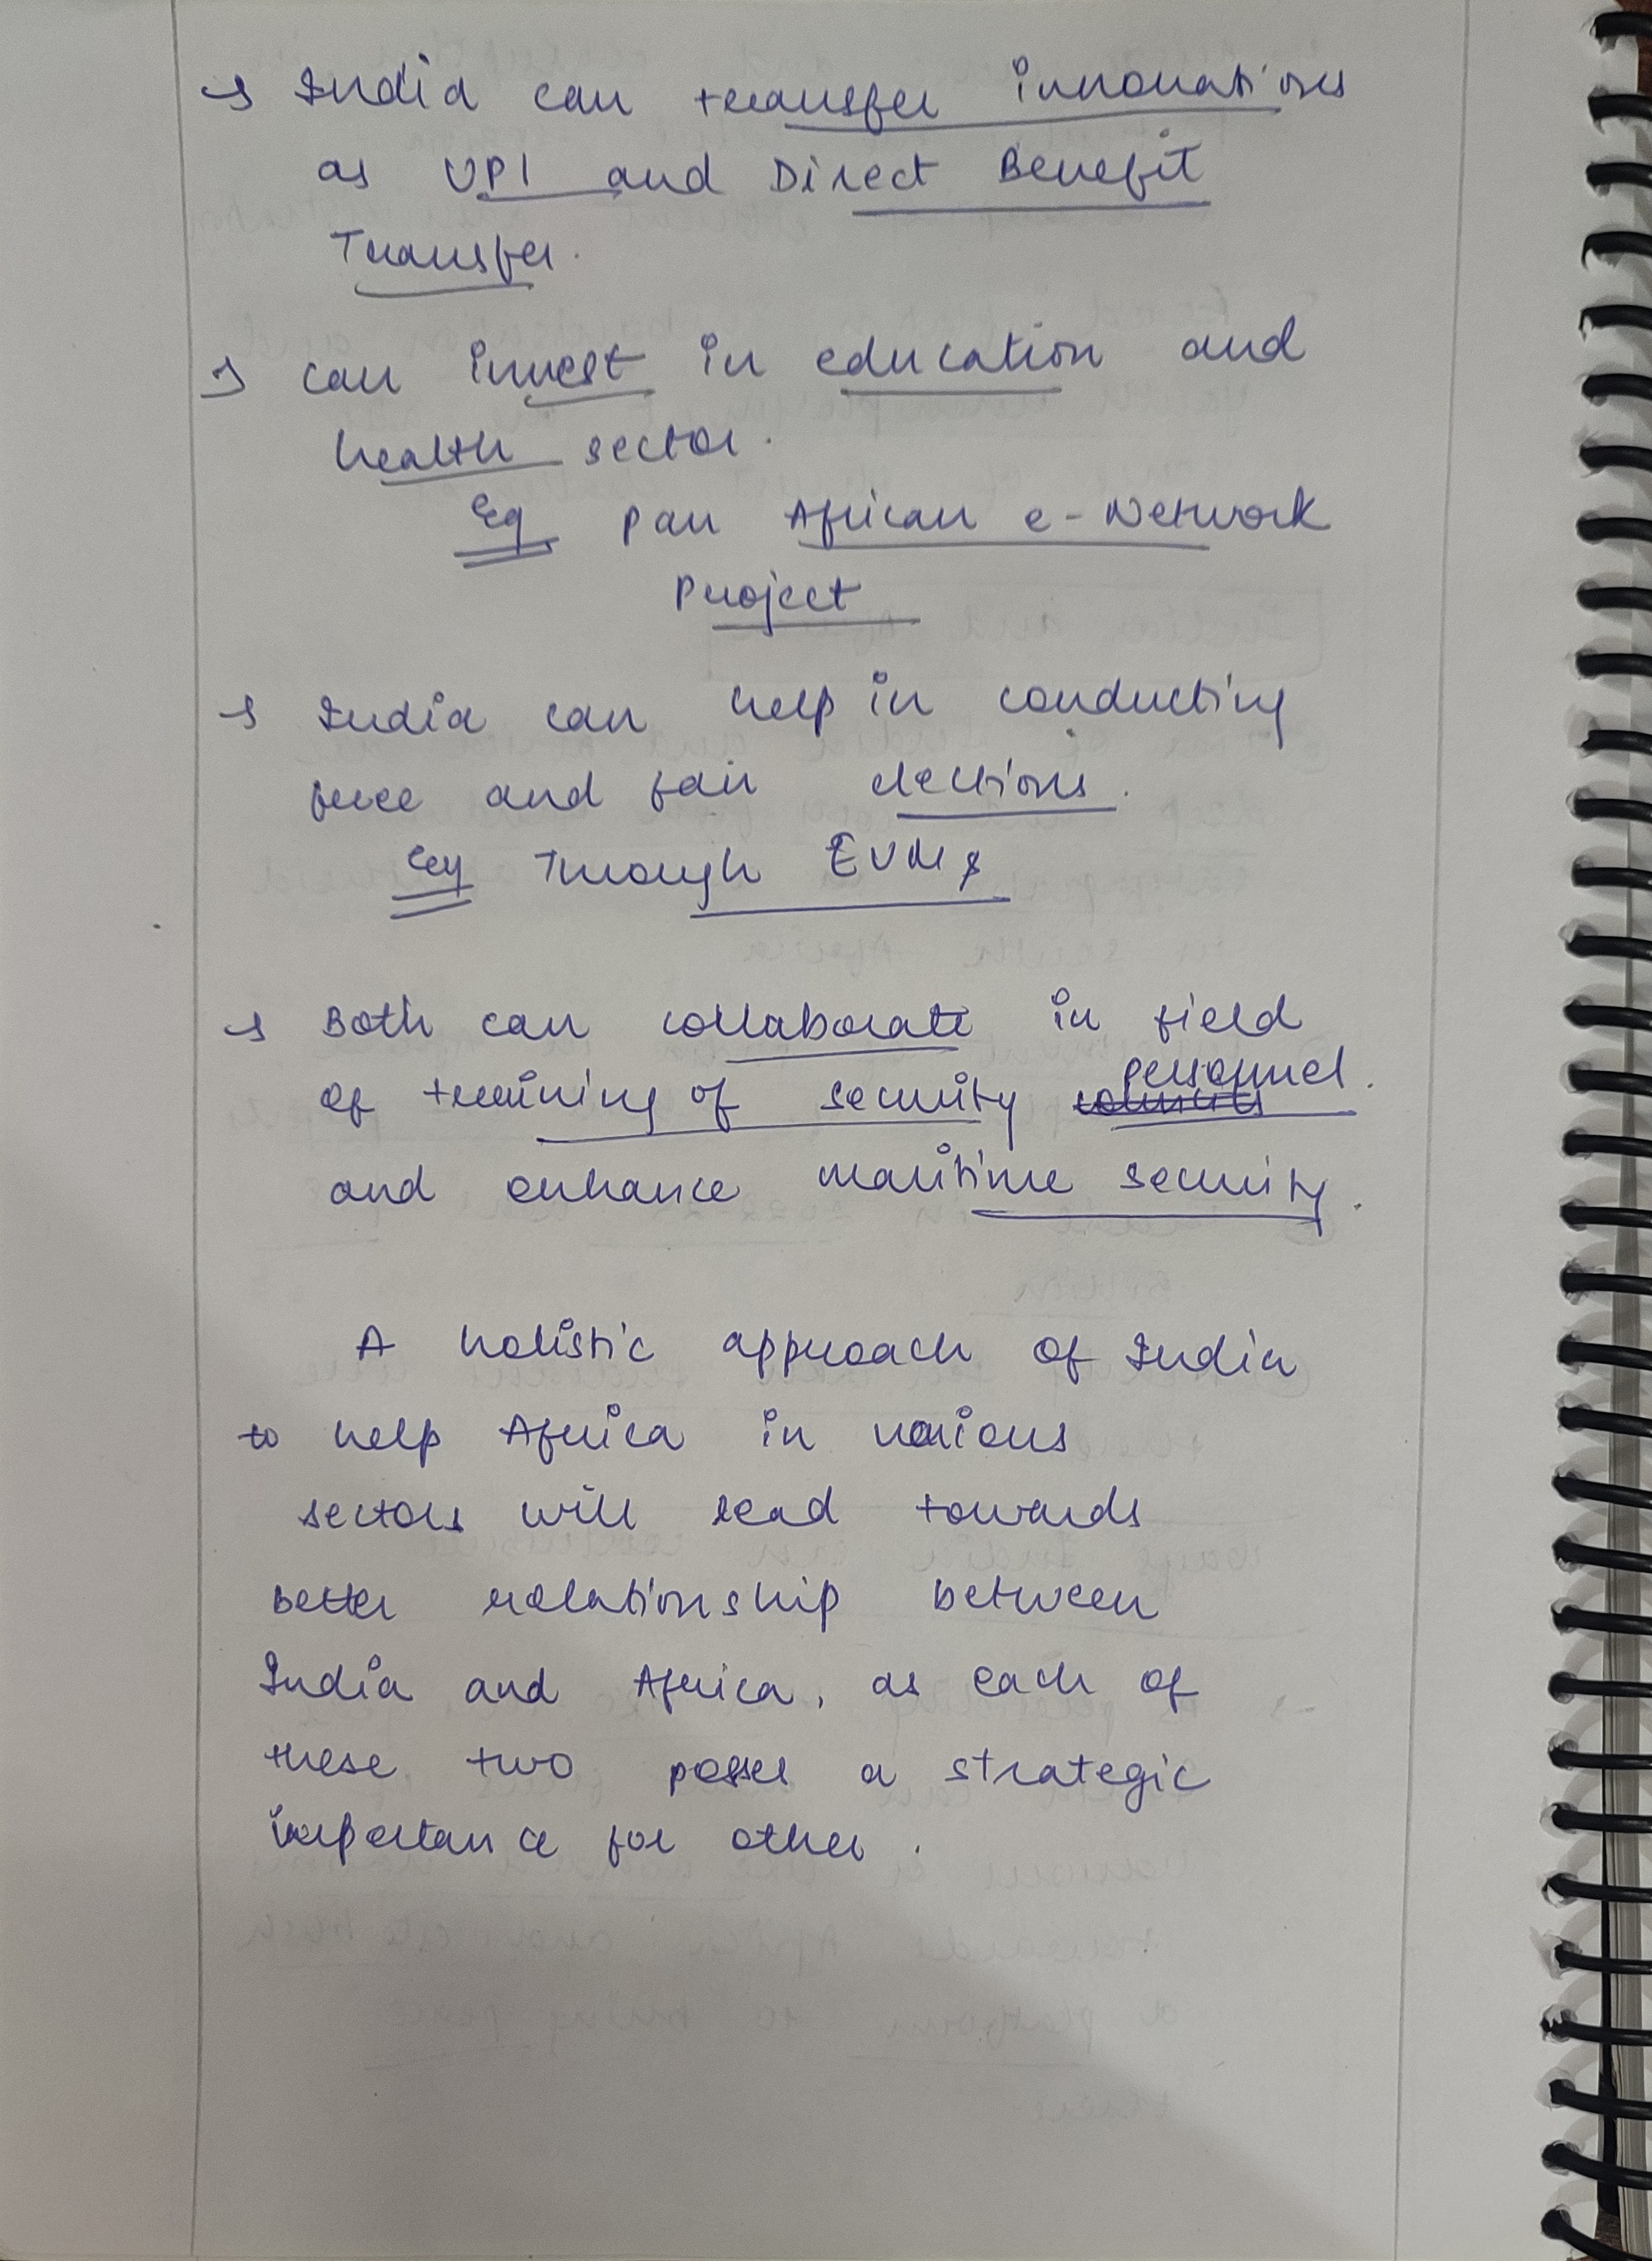 → India can transfer innovations
as UPI and Direct Benefit
Transfer.
→ can invest in education and
health sector.
Eg Pan African e-Network
Project
→ India can help in conducting
free and fair elections.
Eg Through EVMs
→ Both can collaborate in field
personnel.
of training of security
and enhance maritime security.
A holistic approach of India
to help Africa in various
sectors will lead towards
better relationship between
India and Africa, as each of
these two posses a strategic
importance for other.